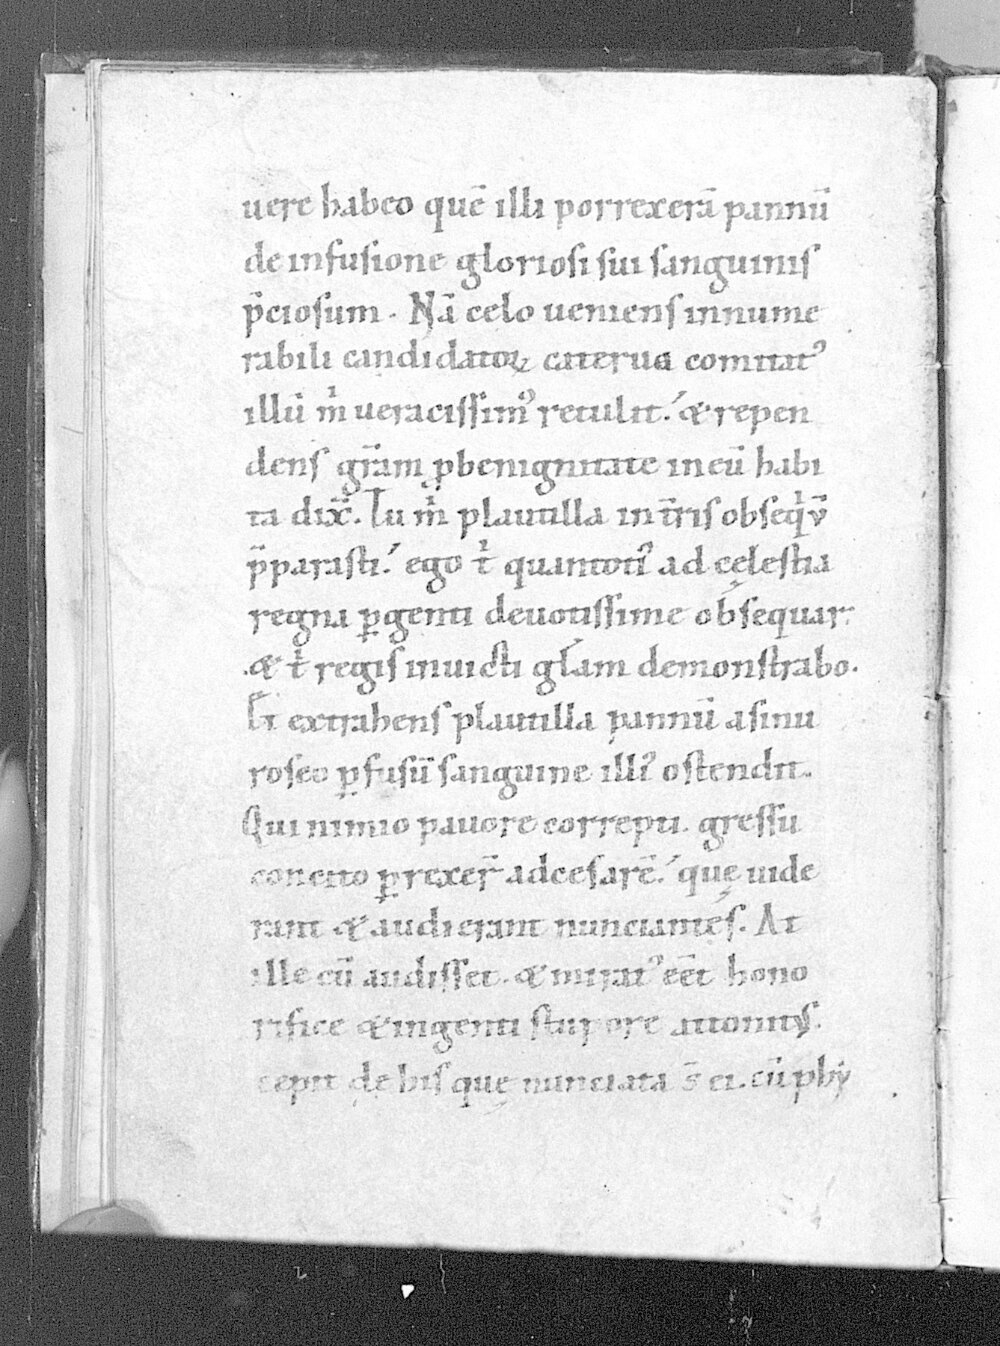 uere habeo quē illi porrexerā pannū
de infusione gloriosi sui sanguinis
p̄ciosum. Nā celo ueniens innume
rabili candidatoꝝ caterua comitatꝰ
illū ṁ ueracissimꝰ retulit. & repen
dens gr̄am ꝓ benignitate in eū habi
ta dix̄. Tu ṁ plautilla in t̄ris obseq̇ū
p̄parasti. ego ṫ quantotiꝰ ad cęlestia
regna ꝑgenti deuotissime obsequar.
& ṫ regis inuicti gl̄am demonstrabo.
Et extrahens plautilla pannū a sinu
roseo ꝑfusū sanguine illiꝰ ostendit.
Qui nimio pauore correpti. gressu
concito ꝑrexer̄ ad cesarē. quę uide
rant & audierant nunciantes. At
ille cū audisset. & miratꝰ eēt hono
rifice & ingenti stupore attonitus.
cepit de his quę nunciata s̄ ei. cū phy